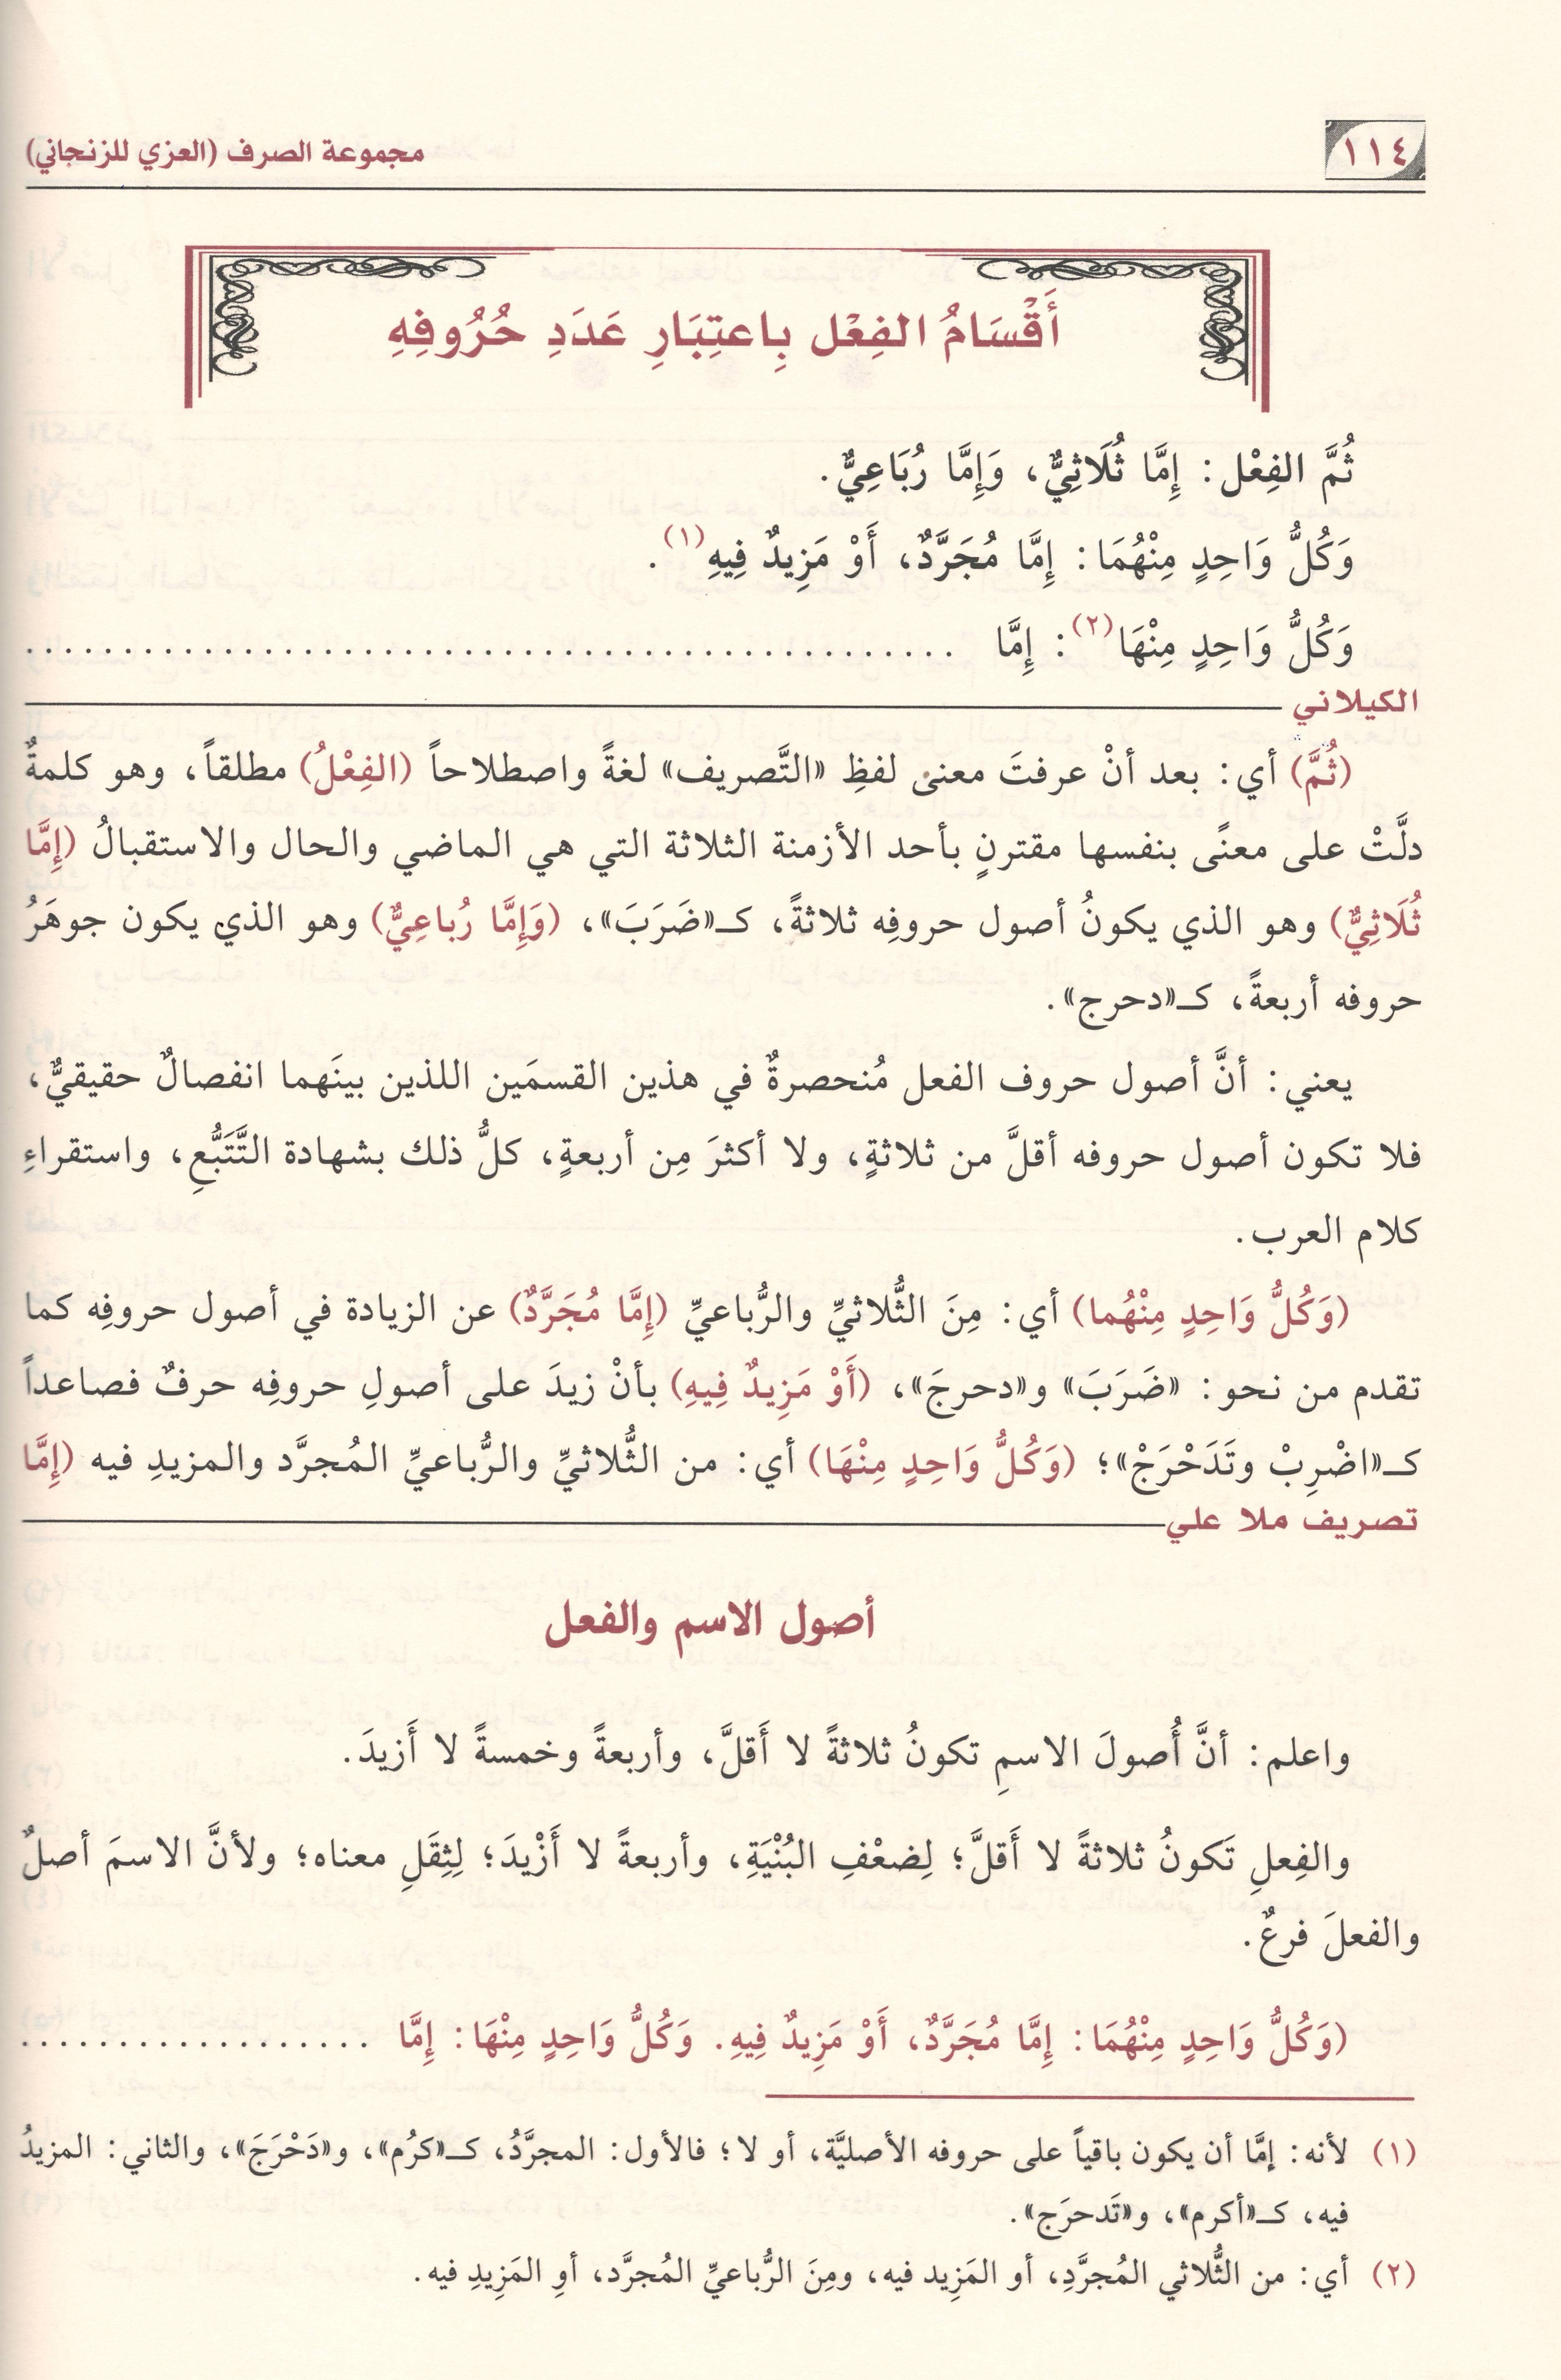 ١١٤
مجموعة الصرف (العزي للزنجاني)
أَقْسَامُ الفِعْل بِاعتِبَارِ عَدَدِ حُرُوفِهِ
ثُمَّ الفِعْل: إِمَّا ثُلَاثِيٌّ، وَإِمَّا رُبَاعِيٌّ.
وَكُلُّ وَاحِدٍ مِنْهُمَا: إِمَّا مُجَرَّدٌ، أَوْ مَزِيدٌ فِيهِ(١).
وَكُلُّ وَاحِدٍ مِنْهَا(٢): إِمَّا ..................................................
الكيلاني
(ثُمَّ) أي: بعد أنْ عرفتَ معنى لفظِ «التَّصريف» لغةً واصطلاحاً (الفِعْلُ) مطلقاً، وهو كلمةٌ
دلَّتْ على معنًى بنفسها مقترنٍ بأحد الأزمنة الثلاثة التي هي الماضي والحال والاستقبالُ (إِمَّا
ثُلَاثِيٌّ) وهو الذي يكونُ أصول حروفِه ثلاثةً، كـ«ضَرَبَ»، (وَإِمَّا رُباعِيٌّ) وهو الذي يكون جوهَرُ
حروفه أربعةً، كـ«دحرج».
يعني: أنَّ أصول حروف الفعل مُنحصرةٌ في هذين القسمَين اللذين بينَهما انفصالٌ حقيقيٌّ،
فلا تكون أصول حروفه أقلَّ من ثلاثةٍ، ولا أكثرَ مِن أربعةٍ، كلُّ ذلك بشهادة التَّتَبُّعِ، واستقراءِ
كلام العرب.
(وَكُلُّ وَاحِدٍ مِنْهُما) أي: مِنَ الثُّلاثيِّ والرُّباعيِّ (إِمَّا مُجَرَّدٌ) عن الزيادة في أصول حروفِه كما
تقدم من نحو: «ضَرَبَ» و«دحرجَ»، (أَوْ مَزِيدٌ فِيهِ) بأنْ زيدَ على أصولِ حروفِه حرفٌ فصاعداً
كـ«اضْرِبْ وتَدَحْرَجْ»؛ (وَكُلُّ وَاحِدٍ مِنْهَا) أي: من الثُّلاثيِّ والرُّباعيِّ المُجرَّد والمزيدِ فيه (إِمَّا
تصريف ملا علي
أصول الاسم والفعل
واعلم: أنَّ أُصولَ الاسمِ تكونُ ثلاثةً لا أَقلَّ، وأربعةً وخمسةً لا أَزيدَ.
والفِعلِ تَكونُ ثلاثةً لا أَقلَّ؛ لِضعْفِ البُنْيَةِ، وأربعةً لا أَزْيدَ؛ لِثِقَلِ معناه؛ ولأنَّ الاسمَ أصلٌ
والفعلَ فرعٌ.
(وَكُلُّ وَاحِدٍ مِنْهُمَا: إِمَّا مُجَرَّدٌ، أَوْ مَزِيدٌ فِيهِ. وَكُلُّ وَاحِدٍ مِنْهَا: إِمَّا ...................
(١) لأنه: إمَّا أن يكون باقياً على حروفه الأصليَّة، أو لا؛ فالأول: المجرَّدُ، كـ«كرُم»، و«دَحْرَجَ»، والثاني: المزيدُ
فيه، كـ«أكرم»، و«تَدحرَج».
(٢) أي: من الثُّلاثي المُجرَّدِ، أو المَزِيد فيه، ومِنَ الرُّباعيِّ المُجرَّد، أوِ المَزِيدِ فيه.